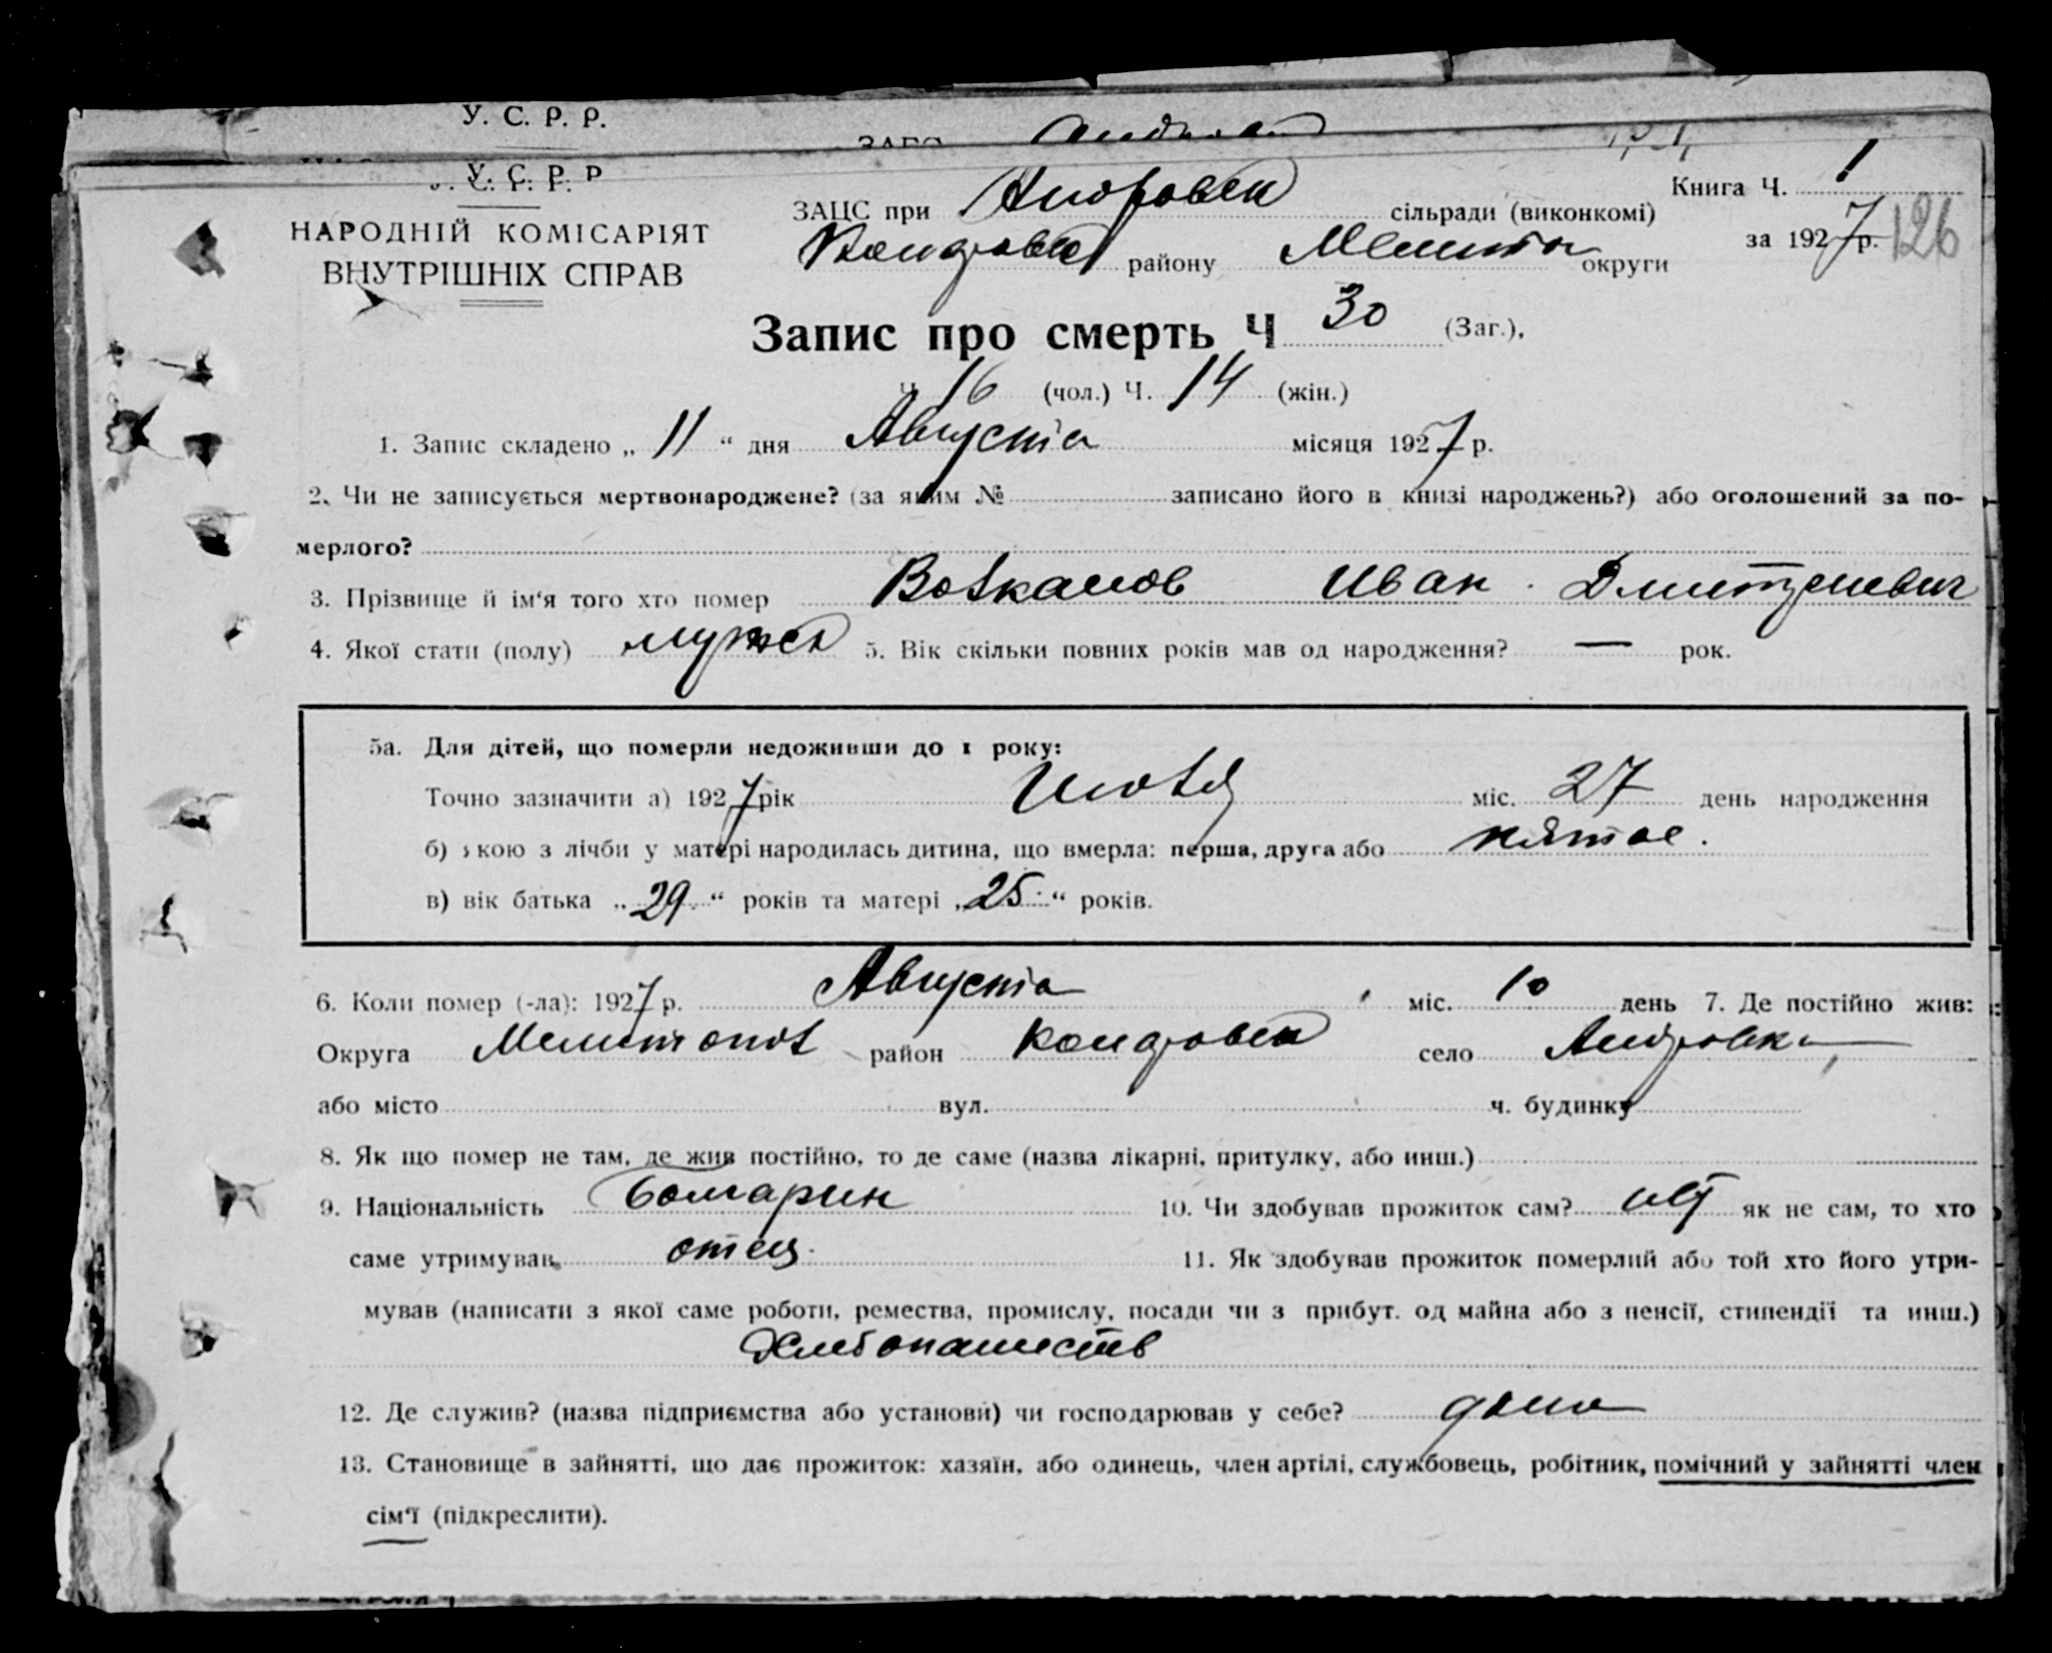 У. С. Р. Р.
ЗАГС
У. С. Р. Р
Книга Ч. 1
ЗАЦС при Андровск сільради (виконкомі)
НАРОДНІЙ КОМІСАРІЯТ
за 1927 р. 126
района округи
ВНУТРІШНІХ СПРАВ
Запис про смерть Ч 30 (Заг.),
Ч 16 (чол.) Ч. 14 (жін.)
1. Запис складено „ 11 “ дня Августа місяця 1927 р.
2. Чи не записується мертвонароджене? (за яким № записано його в книзі народжень?) або оголошений за по-
мерлого?
3. Прізвище й ім‘я того хто помер Иван Дмитриевич
4. Якої стати (полу) мужск 5. Вік скільки повних років мав од народження? — рок.
5а. Для дітей, що померли недоживши до 1 року:
Точно зазначити а) 1927 рік міс. 27 день народження
б) якою з лічби у матері народилась дитина, що вмерла: перша, друга або пятое.
в) вік батька „ 29 “ років та матері „ 25 “ років.
6. Коли помер (-ла): 1927 р. Августа міс. 10 день 7. Де постійно жив:
Округа Мелитопол район село Андровка
або місто вул. ч. будинку
8. Як що помер не там, де жив постійно, то де саме (назва лікарні, притулку, або инш.)
9. Національність болгарин 10. Чи здобував прожиток сам? нет як не сам, то хто
саме утримував отец. 11. Як здобував прожиток померлий або той хто його утри-
мував (написати з якої саме роботи, ремества, промислу, посади чи з прибут. од майна або з пенсії, стипендії та инш.)
Хлебопашеств
12. Де служив? (назва підприємства або установи) чи господарював у себе? дома
13. Становище в зайнятті, що дає прожиток: хазяїн, або одинець, член артілі, службовець, робітник, помічний у зайнятті член
сім‘ї (підкреслити).